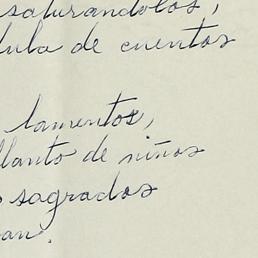 saturandolos,
dula de cuentos
lamentos,
llanto de niños
sagrados
an.